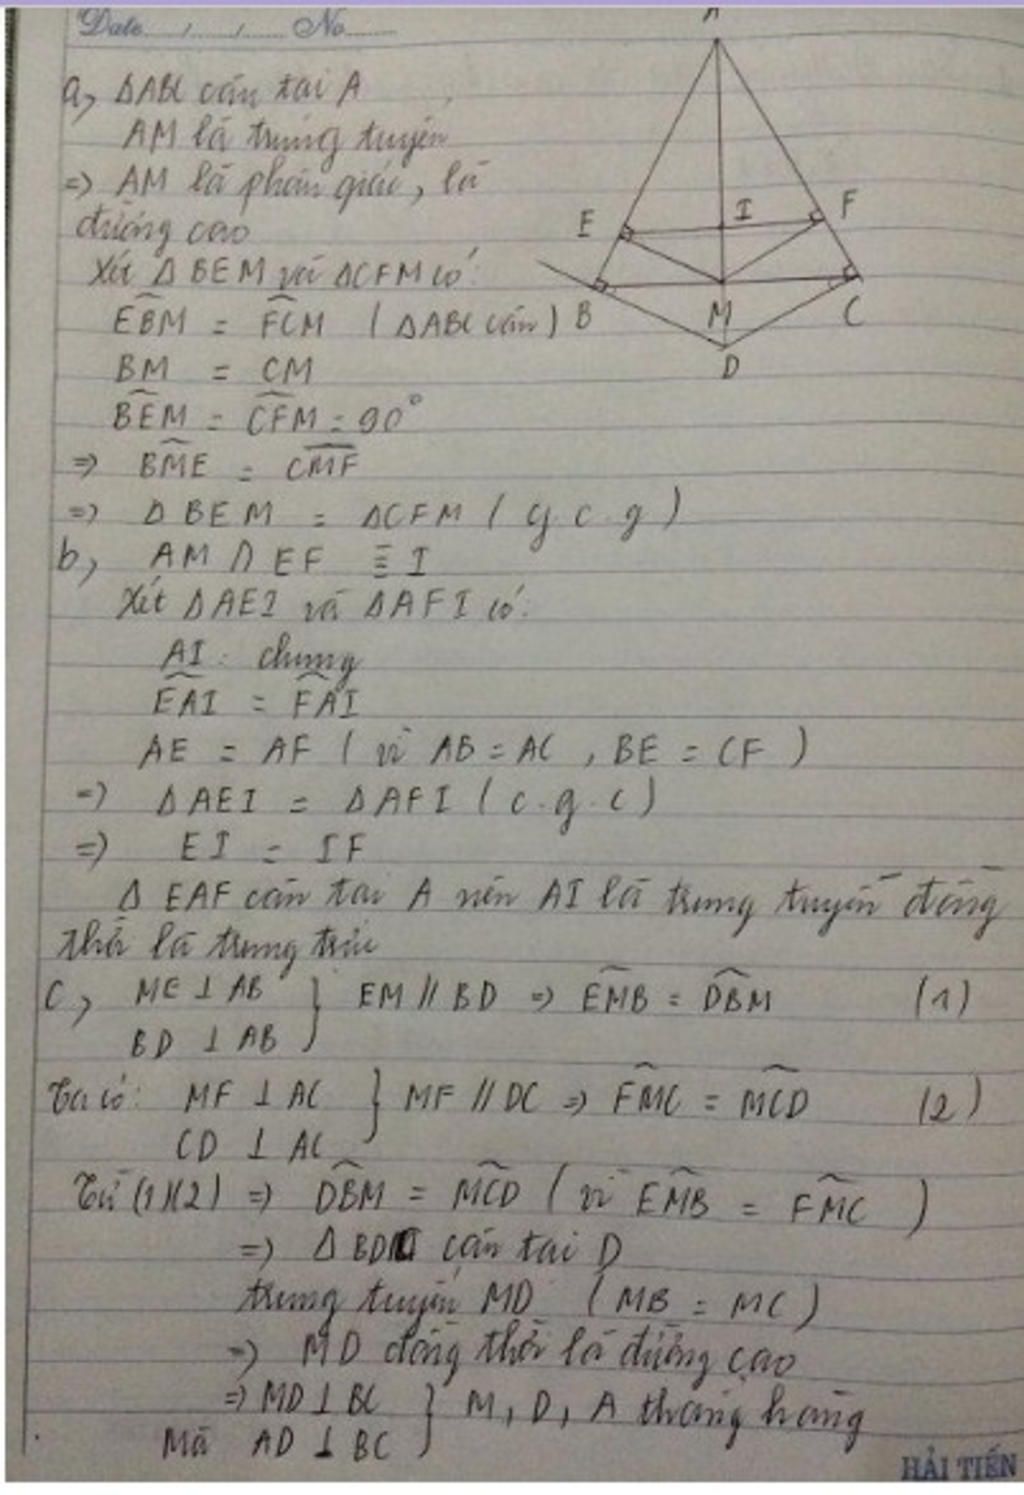 Date...../...../..... No.......
A
a, ΔABC cân tại A
AM là trung tuyến
=> AM là phân giác, là
đường cao
E I F
Xét ΔBEM và ΔCFM có:
EBM = FCM (ΔABC cân)
B M C
BM = CM
D
BEM = CFM = 90°
=> BME = CMF
=> ΔBEM = ΔCFM (g.c.g)
b, AM ∩ EF ≡ I
Xét ΔAEI và ΔAFI có:
AI: chung
EAI = FAI
AE = AF (vì AB = AC, BE = CF)
=> ΔAEI = ΔAFI (c.g.c)
=> EI = IF
ΔEAF cân tại A nên AI là trung tuyến đồng
thời là trung trực
c, ME ⊥ AB } EM // BD => EMB = DBM (1)
BD ⊥ AB
Ta có: MF ⊥ AC } MF // DC => FMC = MCD (2)
CD ⊥ AC
Từ (1)(2) => DBM = MCD (vì EMB = FMC)
=> ΔBDC cân tại D
trung tuyến MD (MB = MC)
=> MD đồng thời là đường cao
=> MD ⊥ BC } M, D, A thẳng hàng
Mà AD ⊥ BC
HẢI TIẾN